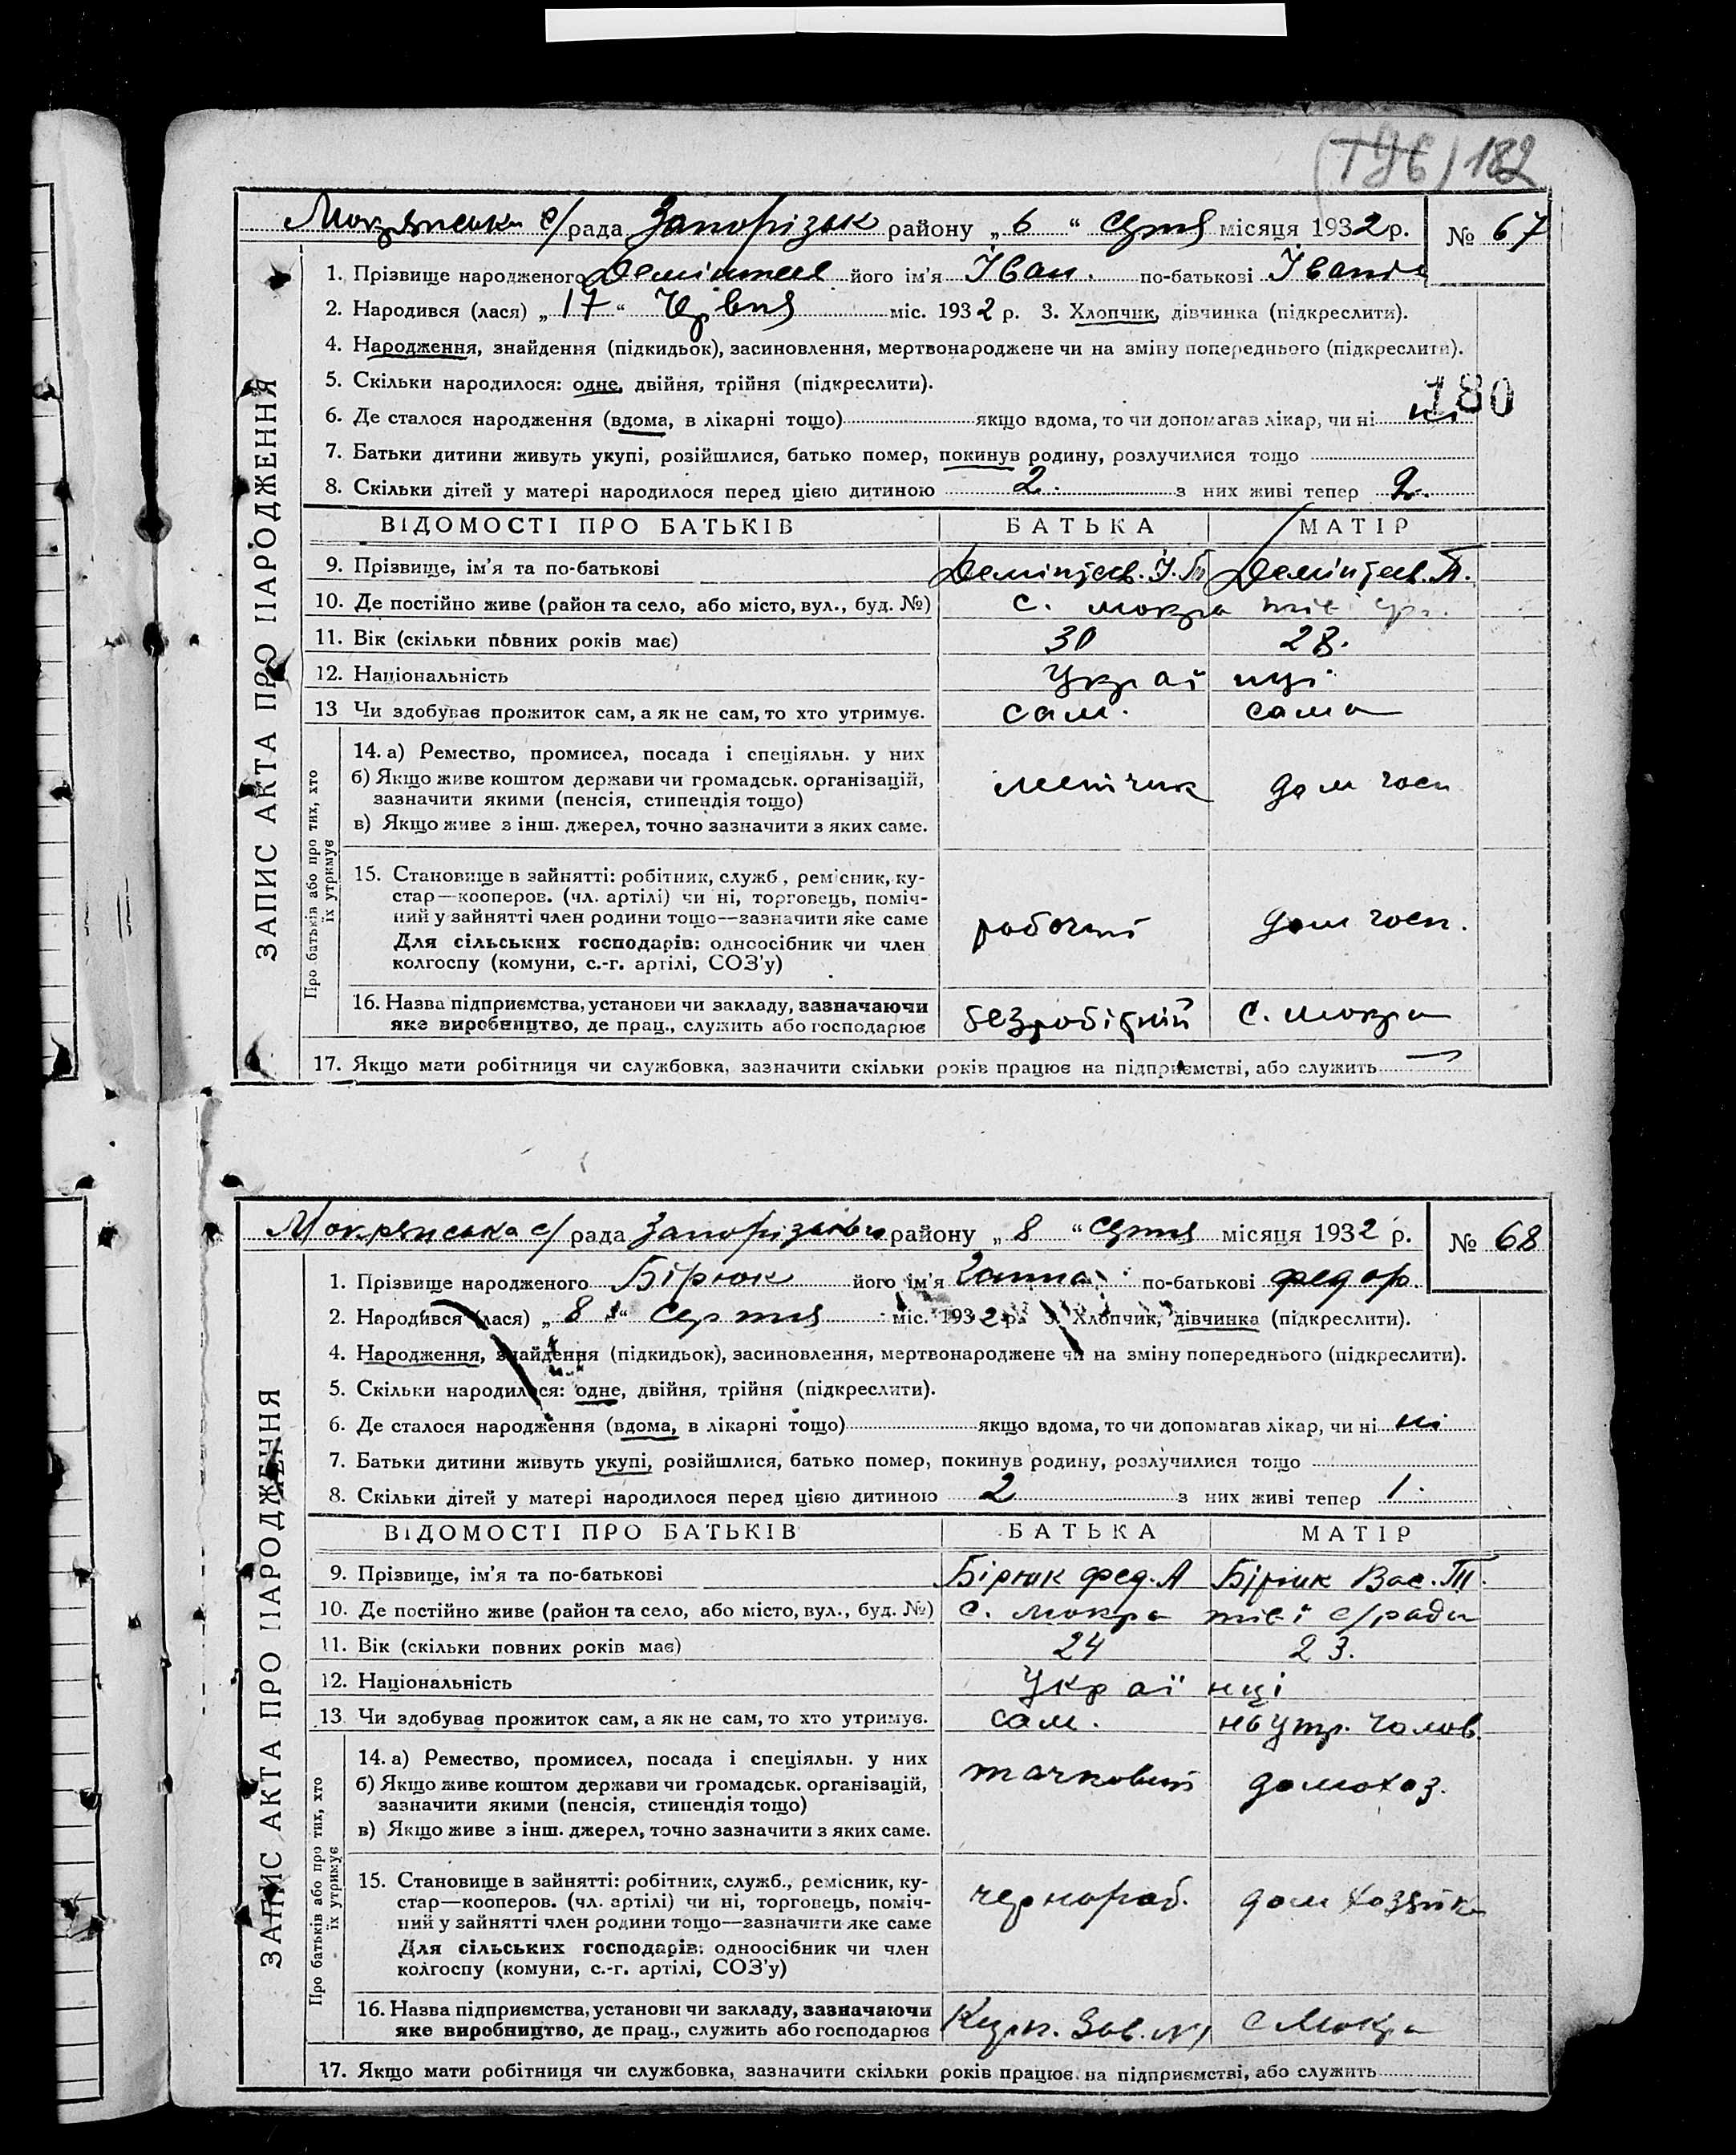 182
Мокрянська с/рада Запорізьк району „ 6 “ серпня місяця 1932 р. № 67
1. Прізвище народженого його ім'я Іван. по-батькові
2. Народився (лася) „ 17 “ Червня міс. 1932 р. 3. Хлопчик, дівчинка (підкреслити).
4. Народження, знайдення (підкидьок), засиновлення, мертвонароджене чи на зміну попереднього (підкреслити).
5. Скільки народилося: одне, двійня, трійня (підкреслити).
180
6. Де сталося народження (вдома, в лікарні тощо) якщо вдома, то чи допомагав лікар, чи ні ні
7. Батьки дитини живуть укупі, розійшлися, батько помер, покинув родину, розлучилися тощо
8. Скільки дітей у матері народилося перед цією дитиною 2. з них живі тепер 2.
ВІДОМОСТІ ПРО БАТЬКІВ БАТЬКА МАТІР
9. Прізвище, ім'я та по-батькові
10. Де постійно живе (район та село, або місто, вул., буд. №) с. мокра
11. Вік (скільки повних років має) 30 28.
12. Національність Украї нці
13 Чи здобував прожиток сам, а як не сам, то хто утримує. сам. сама
14. а) Ремество, промисел, посада і спеціяльн. у них
б) Якщо живе коштом держави чи громадськ. організацій,
зазначити якими (пенсія, стипендія тощо) дом госп
в) Якщо живе з інш. джерел, точно зазначити з яких саме.
15. Становище в зайнятті: робітник, служб., ремісник, ку-
стар—кооперов. (чл. артілі) чи ні, торговець, поміч-
ний у зайнятті член родини тощо—зазначити яке саме
Для сільських господарів: одноосібник чи член
колгоспу (комуни, с.-г. артілі, СОЗ'у)
рабочий дом госп.
16. Назва підприємства, установи чи закладу, зазначаючи
яке виробництво, де прац., служить або господарює безробітний с. мокра
17. Якщо мати робітниця чи службовка, зазначити скільки років працює на підприємстві, або служить —
ЗАПИС АКТА ПРО НАРОДЖЕННЯ
Про батьків або про тих, хто
їх утримує
Мокрянська с/рада Запорізьк району „ 8 “ серпня місяця 1932 р. № 68
1. Прізвище народженого Бірюк його ім'я Ганна по-батькові Федор.
2. Народився (лася) „ 8 “ Серпня міс. 1932 р. 3. Хлопчик, дівчинка (підкреслити).
4. Народження, знайдення (підкидьок), засиновлення, мертвонароджене чи на зміну попереднього (підкреслити).
5. Скільки народилося: одне, двійня, трійня (підкреслити).
6. Де сталося народження (вдома, в лікарні тощо) якщо вдома, то чи допомагав лікар, чи ні ні
7. Батьки дитини живуть укупі, розійшлися, батько помер, покинув родину, розлучилися тощо
8. Скільки дітей у матері народилося перед цією дитиною 2 з них живі тепер 1.
ВІДОМОСТІ ПРО БАТЬКІВ БАТЬКА МАТІР
9. Прізвище, ім'я та по-батькові Бірюк Фед. А Бірюк Вас.
10. Де постійно живе (район та село, або місто, вул., буд. №) с. мокра тієї с/ради
11. Вік (скільки повних років має) 24 23.
12. Національність Украї нці
13 Чи здобував прожиток сам, а як не сам, то хто утримує. сам. на утр. чолов.
14. а) Ремество, промисел, посада і спеціяльн. у них
б) Якщо живе коштом держави чи громадськ. організацій,
зазначити якими (пенсія, стипендія тощо) домохаз.
в) Якщо живе з інш. джерел, точно зазначити з яких саме.
15. Становище в зайнятті: робітник, служб., ремісник, ку-
стар—кооперов. (чл. артілі) чи ні, торговець, поміч-
ний у зайнятті член родини тощо—зазначити яке саме
Для сільських господарів: одноосібник чи член
колгоспу (комуни, с.-г. артілі, СОЗ'у)
чернораб. дом хозяйка
16. Назва підприємства, установи чи закладу, зазначаючи
яке виробництво, де прац., служить або господарює Зав. №1 с Мокра
17. Якщо мати робітниця чи службовка, зазначити скільки років працює на підприємстві, або служить
ЗАПИС АКТА ПРО НАРОДЖЕННЯ
Про батьків або про тих, хто
їх утримує